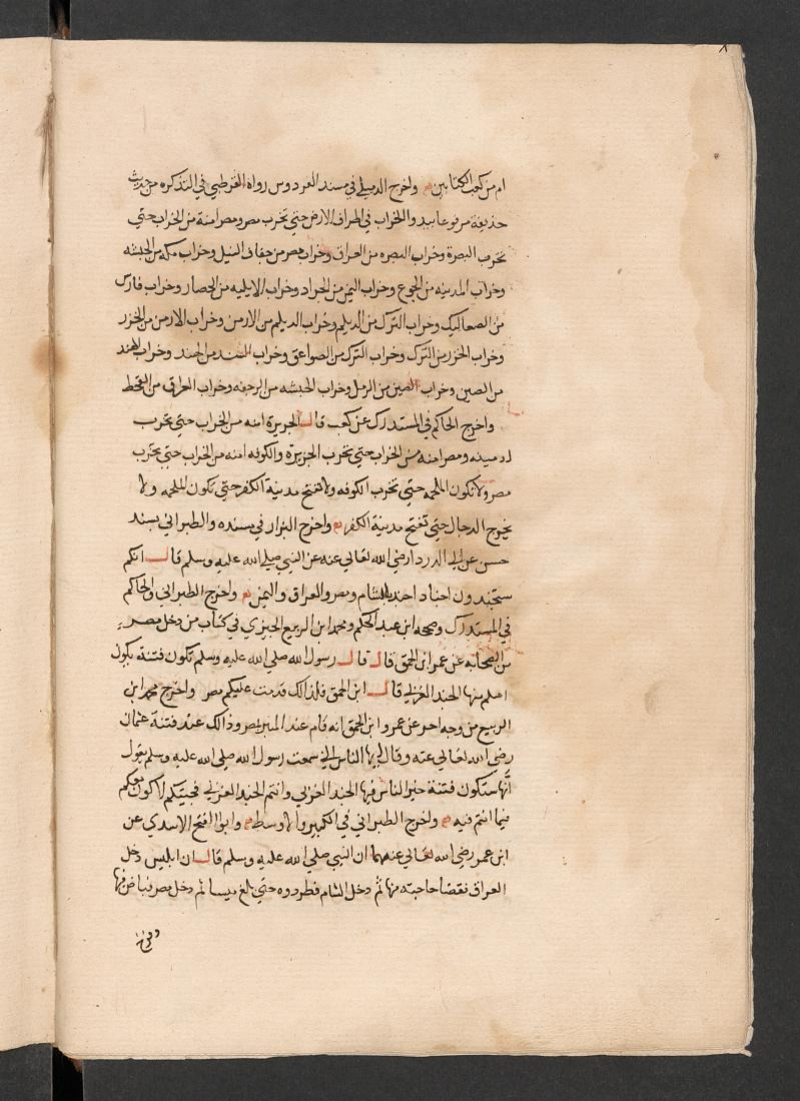 ٨
ام من كعب الكتابين واخرج الديلمي في مسند الفردوس رواه القرطبي في التذكره من حديث
حذيفة مرفوعا يبدو الخراب في اطراف الارض حتي تخرب مصر ومصر امنة من الخراب حتي
تخرب البصرة وخراب البصره من العراق وخراب مصر من جفاف النيل وخراب مكه من الحبشه
وخراب المدينه من الجوع وخراب اليمن من الجراد وخراب الايليه من الحصار وخراب فارس
من الصعاليك وخراب الترك من الديلم وخراب الديلم من الارمن وخراب الارمن من الخزر
وخراب الخزر من الترك وخراب الترك من الصواعق وخراب السند من الهند وخراب الهند
من الصين وخراب الصين من الرمل وخراب الحبشه من الرجفه وخراب العراق من القحط
واخرج الحاكم في المستدرك عن كعب قال الجزيرة امنه من الخراب حتي تخرب
ارمينه ومصر امنه من الخراب حتي تخرب الجزيرة والكوفه امنه من الخراب حتي تخرب
مصر ولا تكون الملحمه حتي تخرب الكوفه ولا تفتح مدينة الكفر حتي تكون الملحمه ولا
يخرج الدجال حتي تفتح مدينة الكفر واخرج البزار في مسنده والطبراني بسند
حسن عن ابي الدردا رضي الله تعالي عنه عن النبي صلي الله عليه وسلم قال انكم
ستجندون اجنادا جندا بالشام ومصر والعراق واليمن واخرج الطبراني والحاكم
في المستدرك وصححه ابن عبد الحكم ومحمد ابن الربيع الجيزي في كتاب من دخل مصر
من الصحابه عن عمرو ابن الحمق قال قال رسول الله صلي الله عليه وسلم تكون فتنة يكون
اسلم منها الجند الغربي قال ابن الحمق فلذالك قدمت عليكم مصر واخرج محمد ابن
الربيع من وجه اخر عن عمرو ابن الحمق انه قام عند المنبر بمصر وذالك عند فتنة عثمان
رضي الله تعالي عنه وقال ايها الناس اني سمعت رسول الله صلي الله عليه وسلم يقول
انها ستكون فتنة خير الناس فيها الجند الغربي وانتم الجند الغربي فجيتكم لاكون معكم
فيما انتم فيه واخرج الطبراني في الكبير والاوسط وابو الفتح الاسدي عن
ابن عمر رضي الله تعالي عنهما ان النبي صلي الله عليه وسلم قال ان ابليس دخل
العراق فقضا حاجته منها ثم دخل الشام فطردوه حتي بلغ ميسا ثم دخل مصر فباض فيها
وفرخ